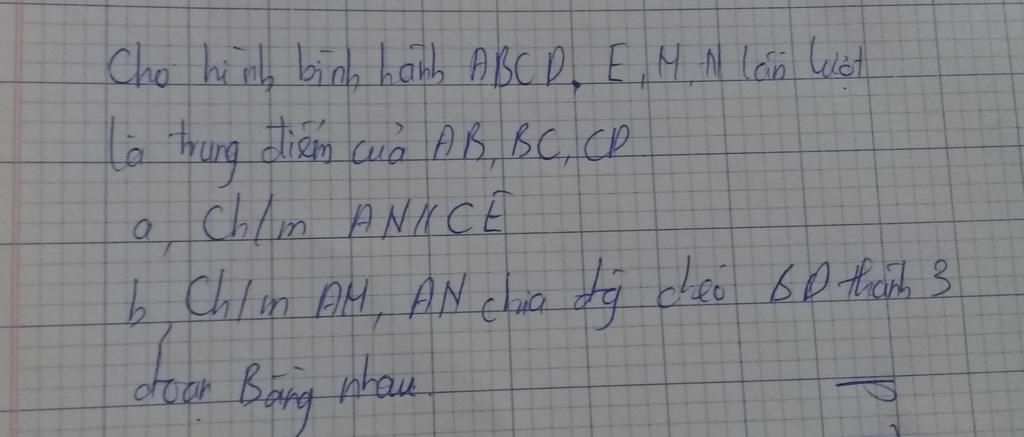 Cho hình bình hành ABCD. E, M, N lần lượt
là trung điểm của AB, BC, CD
a, Ch/m AN//CE
b, Ch/m AM, AN chia đg chéo BD thành 3
đoạn Bằng nhau